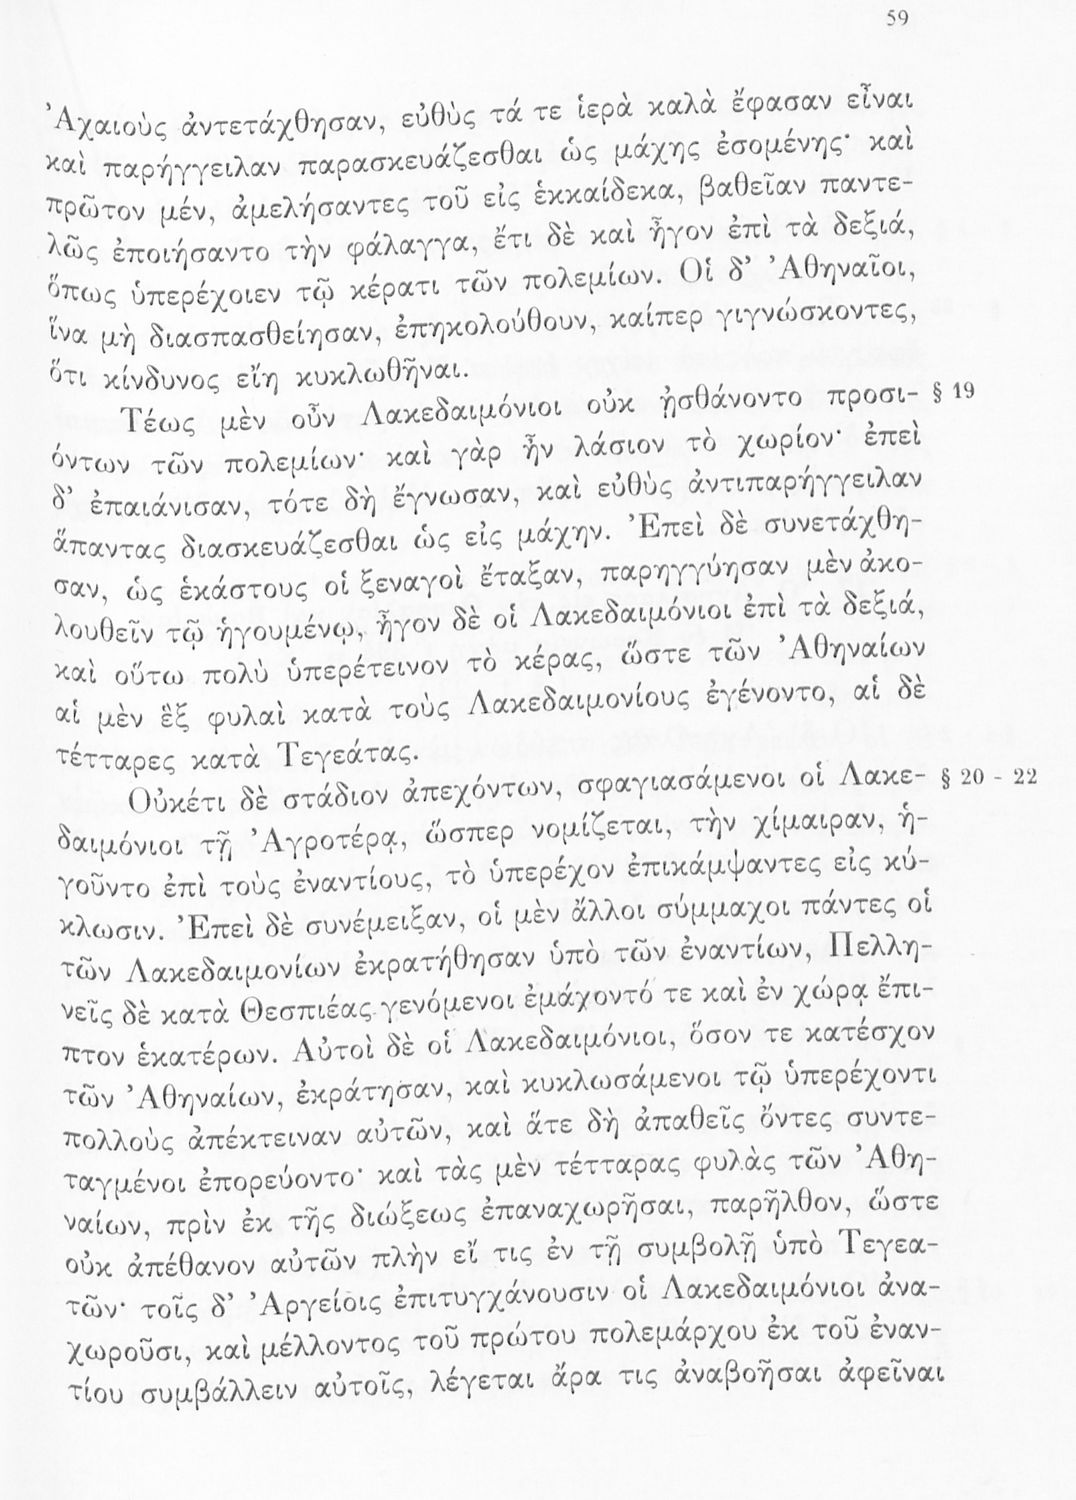 59
Ἀχαιοὺς ἀντετάχθησαν, εὐθὺς τά τε ἱερὰ καλὰ ἔφασαν εἶναι
καὶ παρήγγειλαν παρασκευάζεσθαι ὡς μάχης ἐσομένης· καὶ
πρῶτον μέν, ἀμελήσαντες τοῦ εἰς ἑκκαίδεκα, βαθεῖαν παντε-
λῶς ἐποιήσαντο τὴν φάλαγγα, ἔτι δὲ καὶ ἦγον ἐπὶ τὰ δεξιά,
ὅπως ὑπερέχοιεν τῷ κέρατι τῶν πολεμίων. Οἱ δ' Ἀθηναῖοι,
ἵνα μὴ διασπασθείησαν, ἐπηκολούθουν, καίπερ γιγνώσκοντες,
ὅτι κίνδυνος εἴη κυκλωθῆναι.
Τέως μὲν οὖν Λακεδαιμόνιοι οὐκ ᾐσθάνοντο προσι- § 19
όντων τῶν πολεμίων· καὶ γὰρ ἦν λάσιον τὸ χωρίον· ἐπεὶ
δ' ἐπαιάνισαν, τότε δὴ ἔγνωσαν, καὶ εὐθὺς ἀντιπαρήγγειλαν
ἅπαντας διασκευάζεσθαι ὡς εἰς μάχην. Ἐπεὶ δὲ συνετάχθη-
σαν, ὡς ἑκάστους οἱ ξεναγοὶ ἔταξαν, παρηγγύησαν μὲν ἀκο-
λουθεῖν τῷ ἡγουμένῳ, ἦγον δὲ οἱ Λακεδαιμόνιοι ἐπὶ τὰ δεξιά,
καὶ οὕτω πολὺ ὑπερέτεινον τὸ κέρας, ὥστε τῶν Ἀθηναίων
αἱ μὲν ἓξ φυλαὶ κατὰ τοὺς Λακεδαιμονίους ἐγένοντο, αἱ δὲ
τέτταρες κατὰ Τεγεάτας.
Οὐκέτι δὲ στάδιον ἀπεχόντων, σφαγιασάμενοι οἱ Λακε- § 20 - 22
δαιμόνιοι τῇ Ἀγροτέρᾳ, ὥσπερ νομίζεται, τὴν χίμαιραν, ἡ-
γοῦντο ἐπὶ τοὺς ἐναντίους, τὸ ὑπερέχον ἐπικάμψαντες εἰς κύ-
κλωσιν. Ἐπεὶ δὲ συνέμειξαν, οἱ μὲν ἄλλοι σύμμαχοι πάντες οἱ
τῶν Λακεδαιμονίων ἐκρατήθησαν ὑπὸ τῶν ἐναντίων, Πελλη-
νεῖς δὲ κατὰ Θεσπιέας γενόμενοι ἐμάχοντό τε καὶ ἐν χώρᾳ ἔπι-
πτον ἑκατέρων. Αὐτοὶ δὲ οἱ Λακεδαιμόνιοι, ὅσον τε κατέσχον
τῶν Ἀθηναίων, ἐκράτησαν, καὶ κυκλωσάμενοι τῷ ὑπερέχοντι
πολλοὺς ἀπέκτειναν αὐτῶν, καὶ ἅτε δὴ ἀπαθεῖς ὄντες συντε-
ταγμένοι ἐπορεύοντο· καὶ τὰς μὲν τέτταρας φυλὰς τῶν Ἀθη-
ναίων, πρὶν ἐκ τῆς διώξεως ἐπαναχωρῆσαι, παρῆλθον, ὥστε
οὐκ ἀπέθανον αὐτῶν πλὴν εἴ τις ἐν τῇ συμβολῇ ὑπὸ Τεγεα-
τῶν· τοῖς δ' Ἀργείοις ἐπιτυγχάνουσιν οἱ Λακεδαιμόνιοι ἀνα-
χωροῦσι, καὶ μέλλοντος τοῦ πρώτου πολεμάρχου ἐκ τοῦ ἐναν-
τίου συμβάλλειν αὐτοῖς, λέγεται ἄρα τις ἀναβοῆσαι ἀφεῖναι